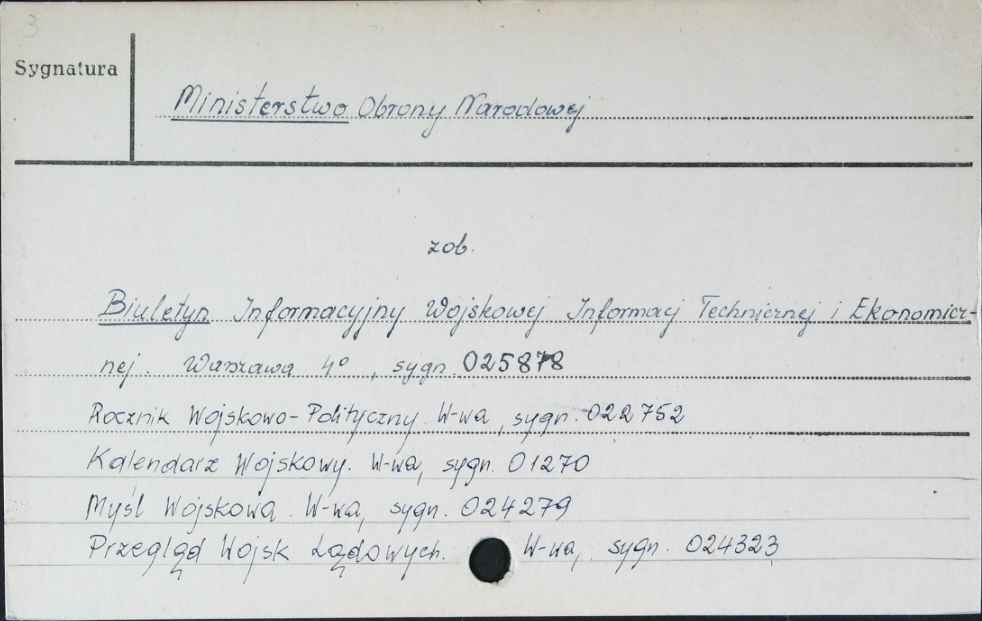 3
Sygnatura
Ministerstwo Obrony Narodowej
zob.
Biuletyn Informacyjny Wojskowej Informacji Technicznej i Ekonomicz-
nej. Warszawa 4°, sygn. 025878
Rocznik Wojskowo-Polityczny. W-wa, sygn. 022752
Kalendarz Wojskowy. W-wa, sygn. 01270
Myśl Wojskowa. W-wa, sygn. 024279
Przegląd Wojsk Lądowych. W-wa, sygn. 024323